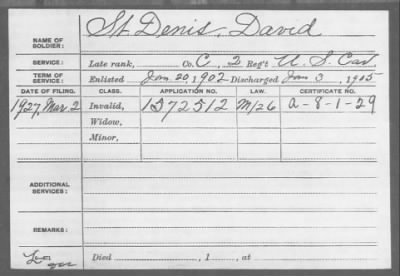 NAME OF SOLDIER: St Denis, David
SERVICE: Late rank, Co. C, 2 Reg't U. S. Cav.
TERM OF SERVICE: Enlisted Jan. 20, 1902 Discharged Jan 3, 1905
DATE OF FILING. CLASS. APPLICATION NO. LAW. CERTIFICATE NO.
1927, Mar. 2 Invalid, 1572512 M/26 a-8-1-29
Widow,
Minor,
ADDITIONAL SERVICES:
REMARKS:
Died , 1 , at